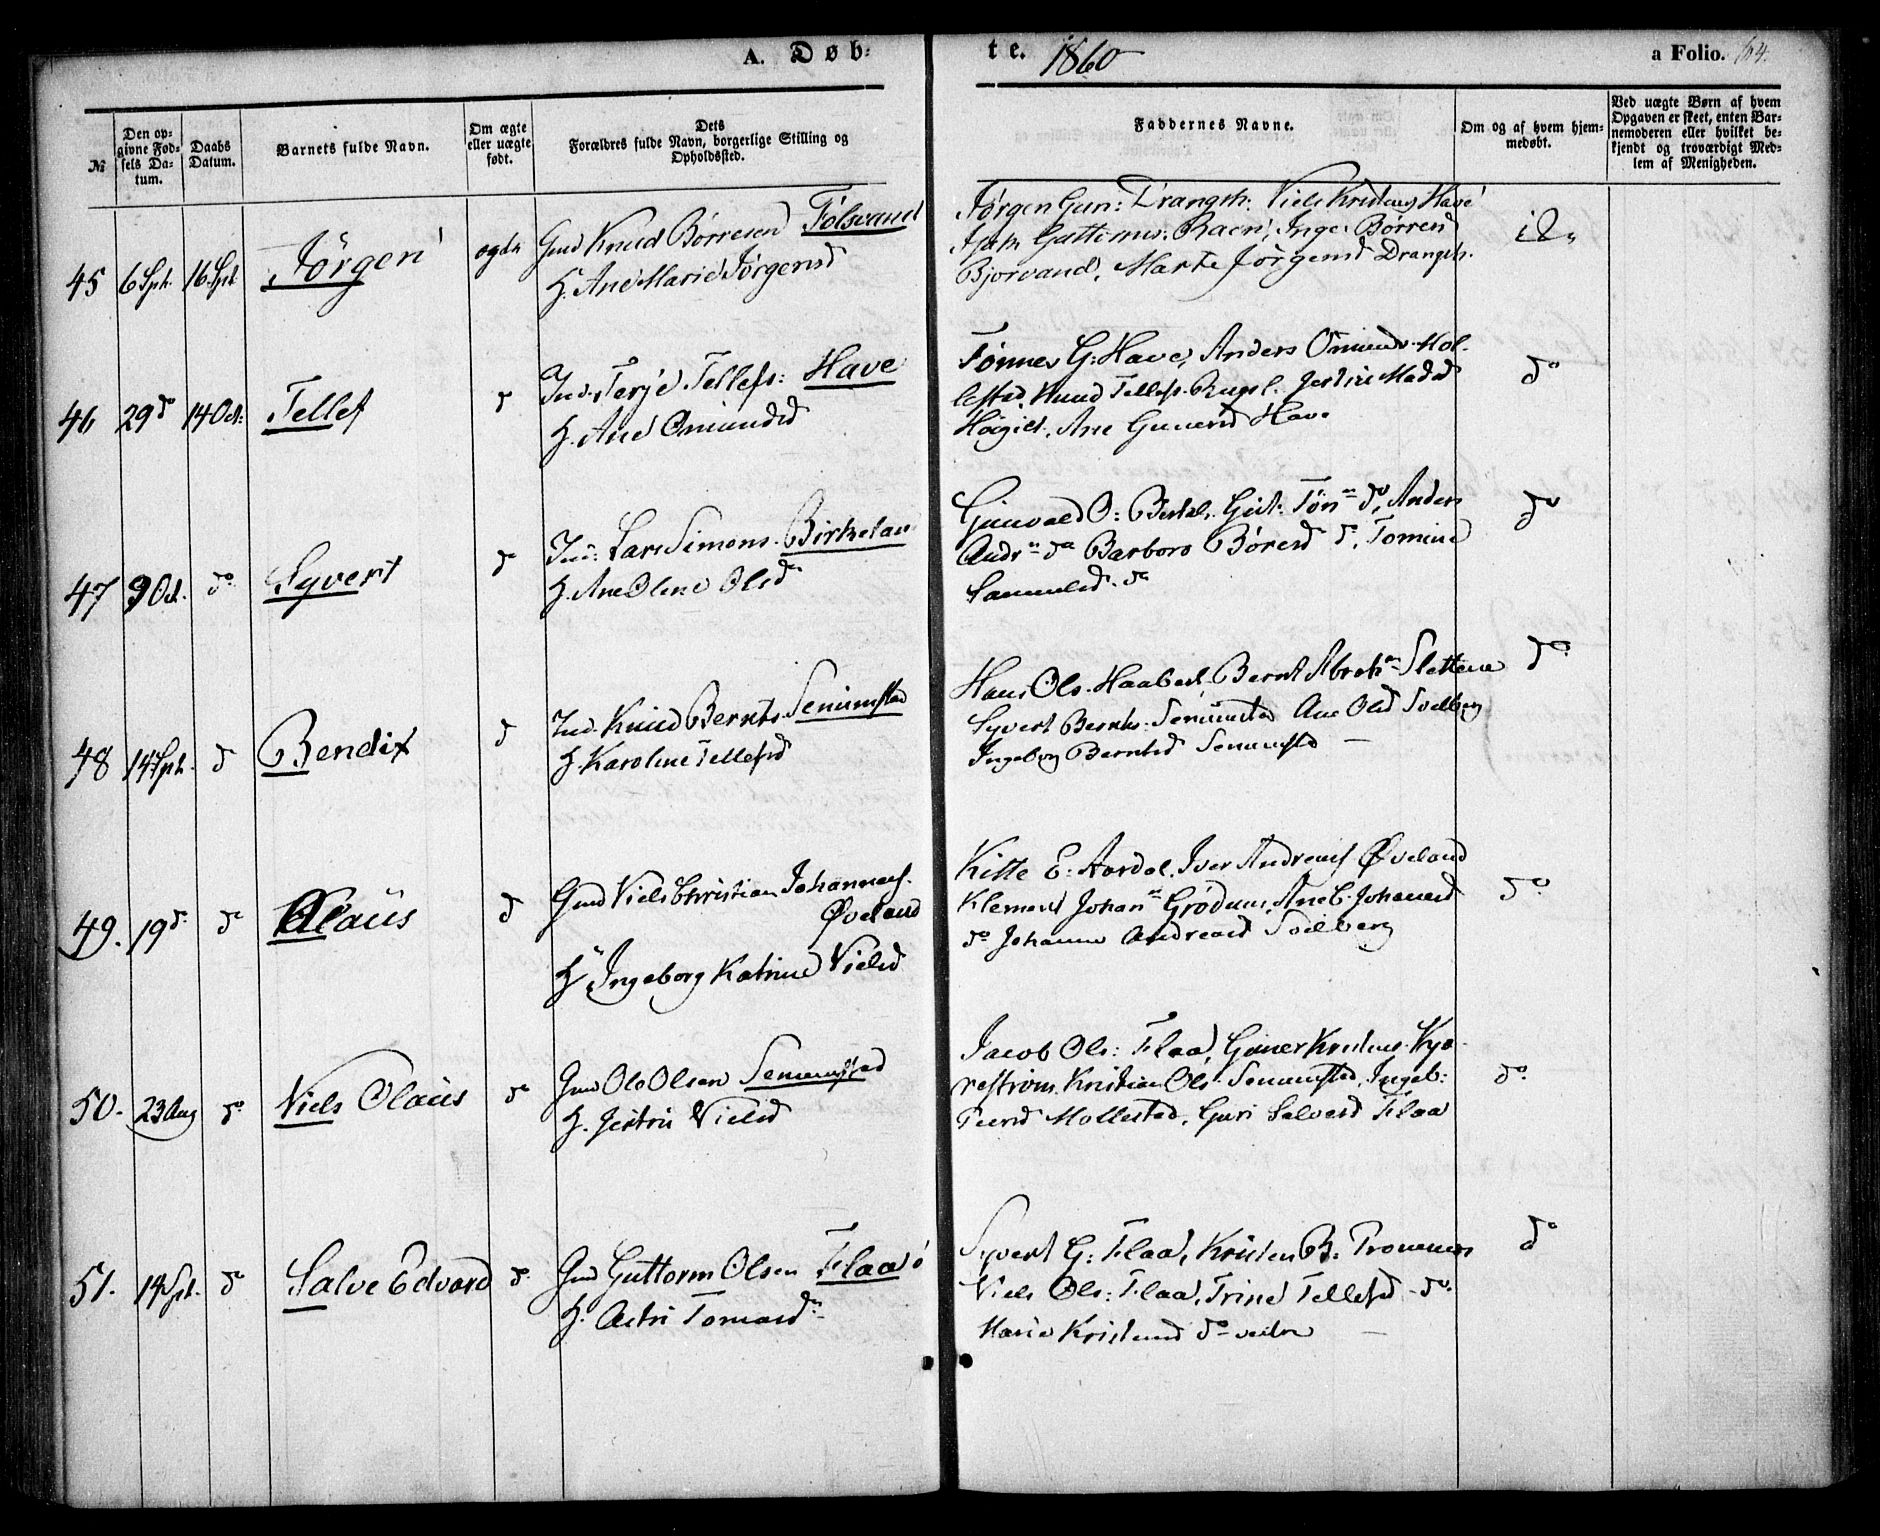 A. Døb-
te. 1860
a Folio. 64.
№
Den op-
givne Fød-
sels Da-
tum.
Daabs
Datum.
Barnets fulde Navn.
Om ægte
eller uægte
født.
Dets
Forældres fulde Navn, borgerlige Stilling og
Opholdssted.
Faddernes Navne.
Om og af hvem hjem-
medøbt.
Ved uægte Børn af hvem
Opgaven er skeet, enten Bar-
nemoderen eller hvilket be-
kjendt og troværdigt Med-
lem af Menigheden.
45 6 Spt. 16 Spt Jörgen ægte
Gmd Knud Börresen Fölsvand
H. Ane Marie Jörgensd
Jørgen Gun: Drangsh. Niels Kristens Have
Gattorms: Raen, Inge Börresd
Bjorvand, Marte Jörgensd Drangsh.
46 29 do 14 Oct: Tellef d
Ind. Terje Tellefs: Have
H. Ane Omundsd
Tönnes G. Have, Anders Omunds Mol-
lestad, Knud Tellefs. Jertine Madsd
Ane Gunersd Have
do
47 9 Oct. do Syvert do
Ind: Lars Simons. Birkelan
H. Ane Olene Olsd
Gunvald O: Birkel. Tön do, Anders
Andrn do Barboro Börresd do, Tomine
Samuelsd. do
do
48 14 Spt. d Bendix d
Ind. Knud Bernts. Senumstad
H. Karoline Tellefsd
Hans Ols. Haabest. Bernt Abrah Slettene
Syvert Bernts. Senumstad Ane Olsd Soelberg
Ingeborg Berntsd Senumstd —
do
49. 19 d. d Olaüs d
Gmd Niels Christian Johannes.
Øveland
H. Ingeborg Katrine Nielsd
Kitte E: Aardal, Iver Andreas Øveland
Klemend Johan Grödum, Ane C. Johansd
do Johanne Andreasd Soelberg
do
50. 23 Aug d. Niels Olaüs do
Gmd Ole Olsen Senumstad
H. Jertru Nielsd
Jacob Ols: Flaa, Guner Kristens. Kyo-
restrøm. Kristian Ols. Senumstad, Ingeb:
Teersd Mollestad, Guri Salvesd Flaa
do
51. 14 Spt. do Salve Edvard d.
Gmd Guttorm Olsen Flaa
H. Astri Tomasd
Syvert G: Flaa, Kristen B. Trommes
Niels Ols: Flaa, Trine Tellefsd do
Marie Kristensd do
do